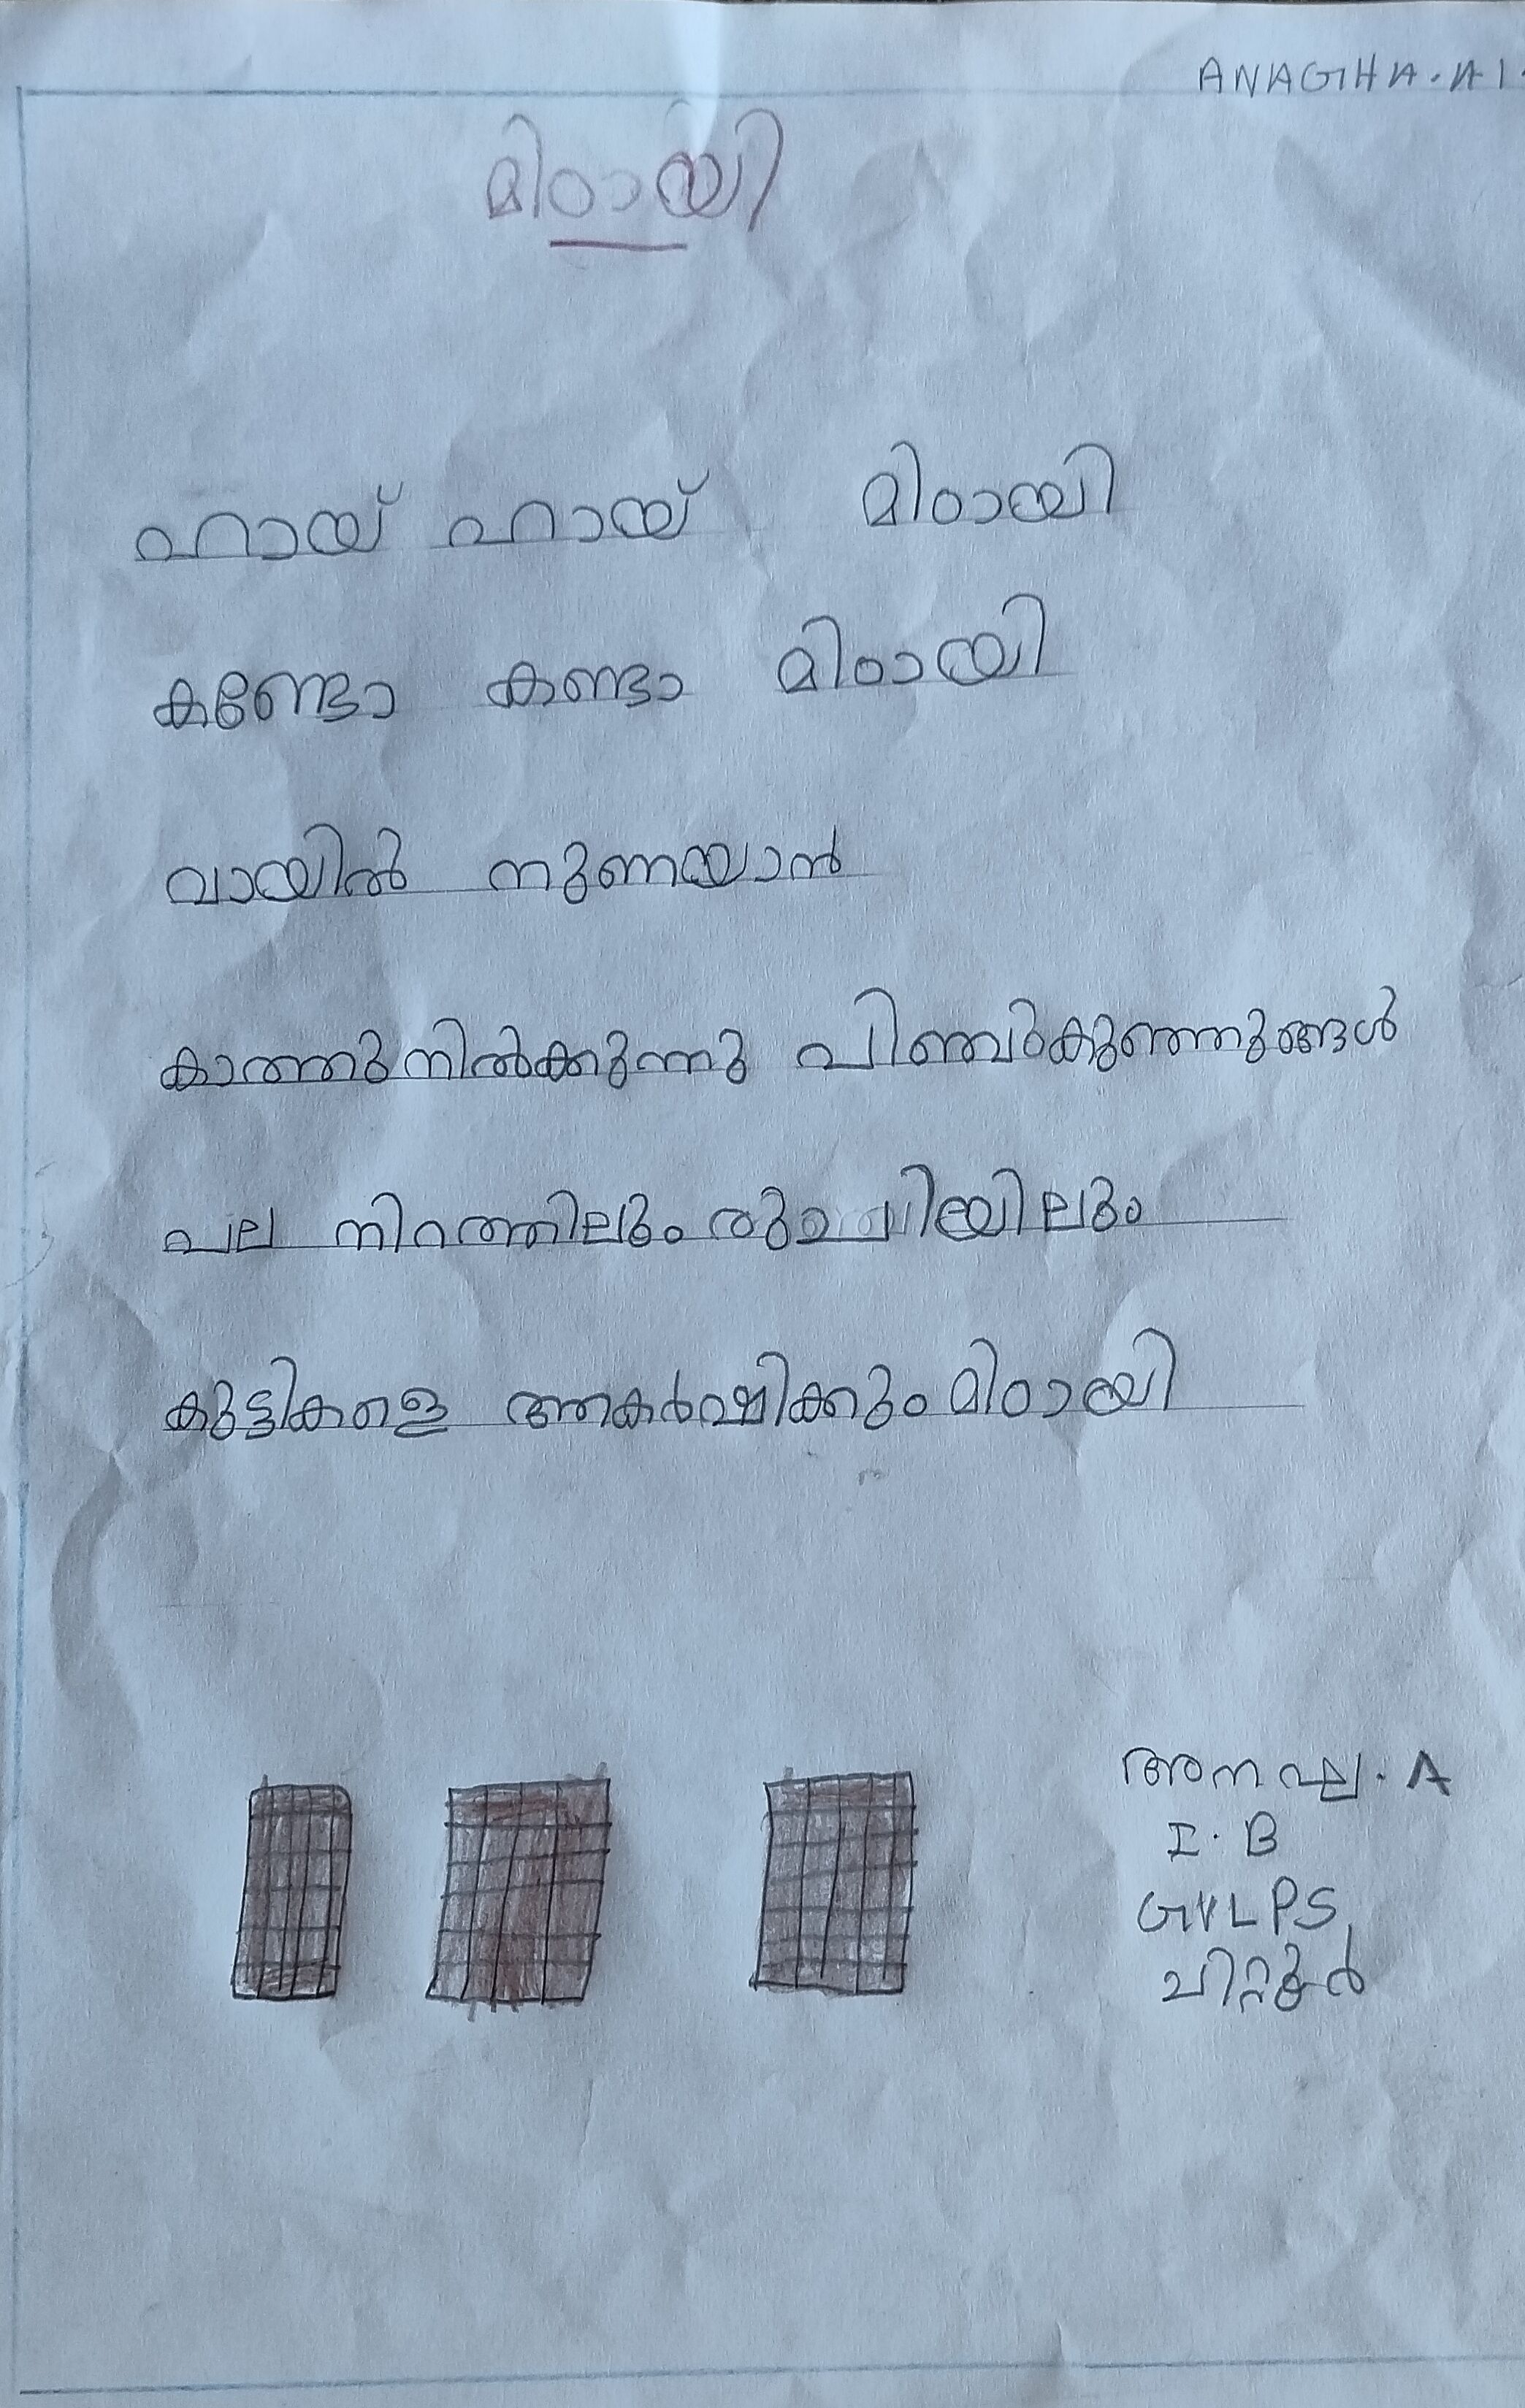 ANAGHA.A 1.
മിഠായി
ഹായ് ഹായ് മിഠായി
കണ്ടോ കണ്ടാ മിഠായി
വായിൽ നുണയാൻ
കാത്തുനിൽക്കുന്നു പിഞ്ചുകുഞ്ഞുങ്ങൾ
പല നിറത്തിലും രുചിയിലും
കുട്ടികളെ ആകർഷിക്കും മിഠായി
അനഘ. A
I. B
GVLPS,
ചിറ്റൂർ